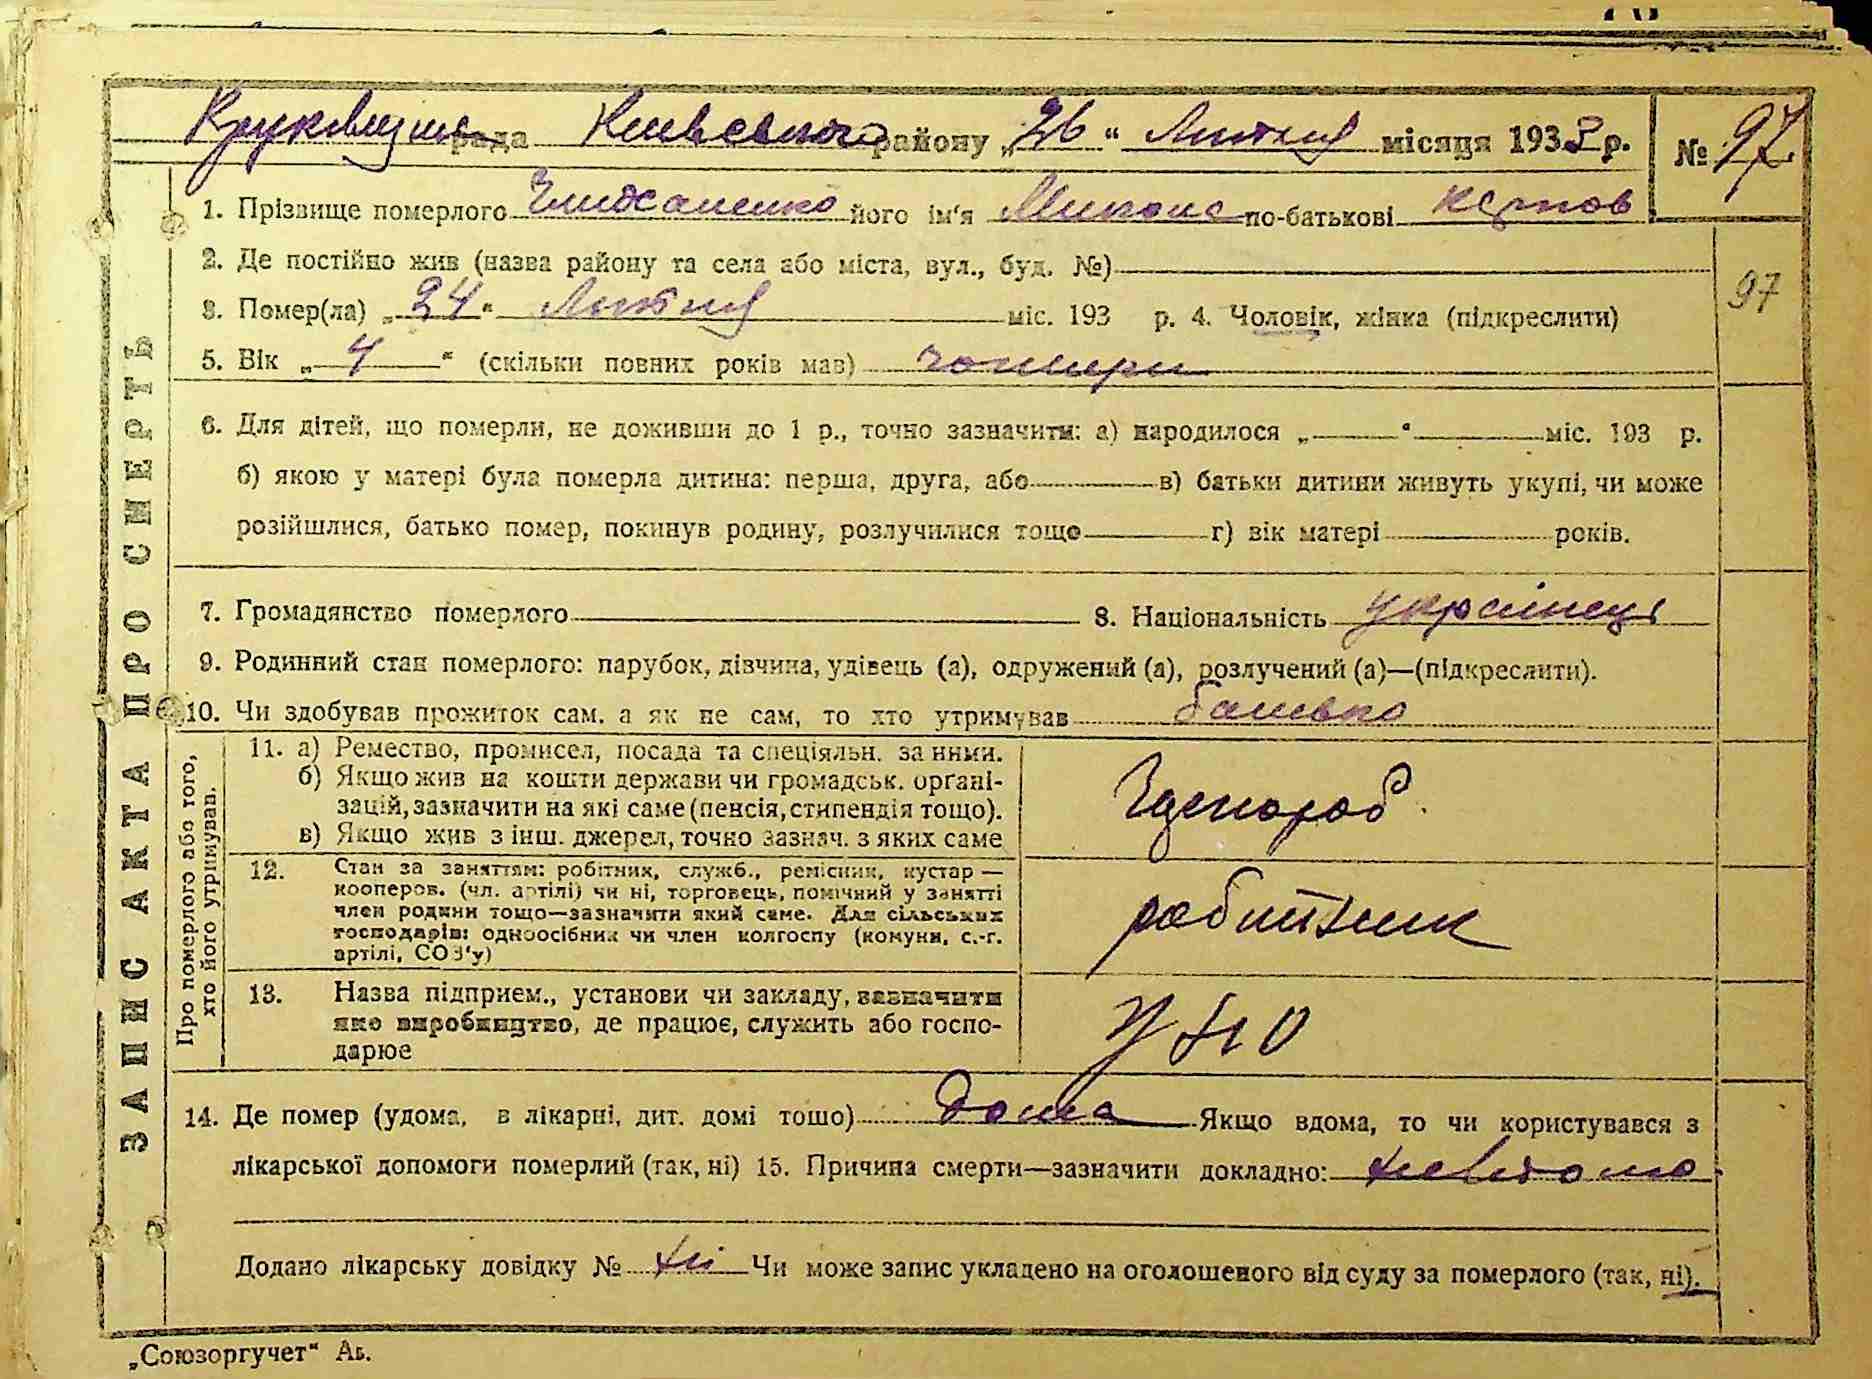 рада Київського району „26“ Лютня місяця 1933 р. № 97
1. Прізвище померлого його ім‘я Микола по-батькові Карпов
2. Де постійно жив (назва району та села або міста, вул., буд. №)
97
3. Помер(ла) „24“ Лютня міс. 193 р. 4. Чоловік, жінка (підкреслити)
5. Вік „4“ (скільки повних років мав) чотири
6. Для дітей, що померли, не доживши до 1 р., точно зазначити: а) народилося „ “ міс. 193 р.
б) якою у матері була померла дитина: перша, друга, або в) батьки дитини живуть укупі, чи може
розійшлися, батько помер, покинув родину, розлучилися тощо г) вік матері років.
7. Громадянство померлого 8. Національність українець
9. Родинний стан померлого: парубок, дівчина, удівець (а), одружений (а), розлучений (а)—(підкреслити).
10. Чи здобував прожиток сам, а як не сам, то хто утримував батько
ЗАПИС АКТА ПРО СМЕРТЬ
Про померлого або того, хто його утримував.
11. а) Ремество, промисел, посада та спеціяльн. за ними.
б) Якщо жив на кошти держави чи громадськ. орґані-
зацій, зазначити на які саме (пенсія, стипендія тощо).
в) Якщо жив з інш. джерел, точно зазнач. з яких саме
Чорнороб
12. Стан за заняттям: робітник, служб., ремісник, кустар —
кооперов. (чл. артілі) чи ні, торговець, помічний у занятті
член родини тощо—зазначити який саме. Для сільських
господарів: одноосібник чи член колгоспу (комуни, с.-г.
артілі, СОЗ‘у)
робітник
13. Назва підприєм., установи чи закладу, зазначити
яке виробництво, де працює, служить або госпо-
дарює
14. Де помер (удома, в лікарні, дит. домі тощо) дома Якщо вдома, то чи користувався з
лікарської допомоги померлий (так, ні) 15. Причина смерти—зазначити докладно: невідомо
Додано лікарську довідку № ні Чи може запис укладено на оголошеного від суду за померлого (так, ні).
„Союзоргучет“ Ав.